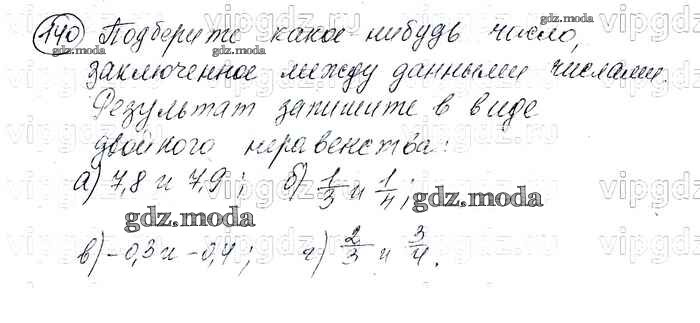 140 Подберите какое нибудь число,
заключенное между данными числами.
Результат запишите в виде
двойного неравенства:
а) 7,8 и 7,9; б) 1/3 и 1/4;
в) -0,3 и -0,4; г) 2/3 и 3/4.
gdz.moda
gdz.moda
gdz.moda
gdz.moda
gdz.moda
gdz.moda
vipgdz.ru